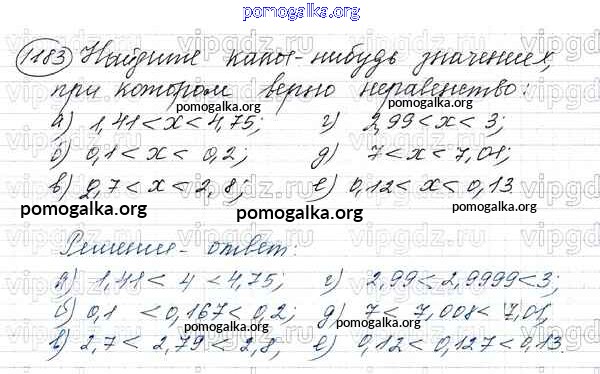 pomogalka.org
1183 Найдите какое-нибудь значение x,
при котором верно неравенство:
pomogalka.org pomogalka.org
а) 1,41 < x < 4,75; г) 2,99 < x < 3;
б) 0,1 < x < 0,2; д) 7 < x < 7,01;
в) 2,7 < x < 2,8; е) 0,12 < x < 0,13
pomogalka.org pomogalka.org
Решение - ответ:
а) 1,41 < 4 < 4,75; г) 2,99 < 2,9999 < 3;
б) 0,1 < 0,167 < 0,2; д) 7 < 7,008 < 7,01,
pomogalka.org pomogalka.org
в) 2,7 < 2,79 < 2,8, е) 0,12 < 0,127 < 0,13.